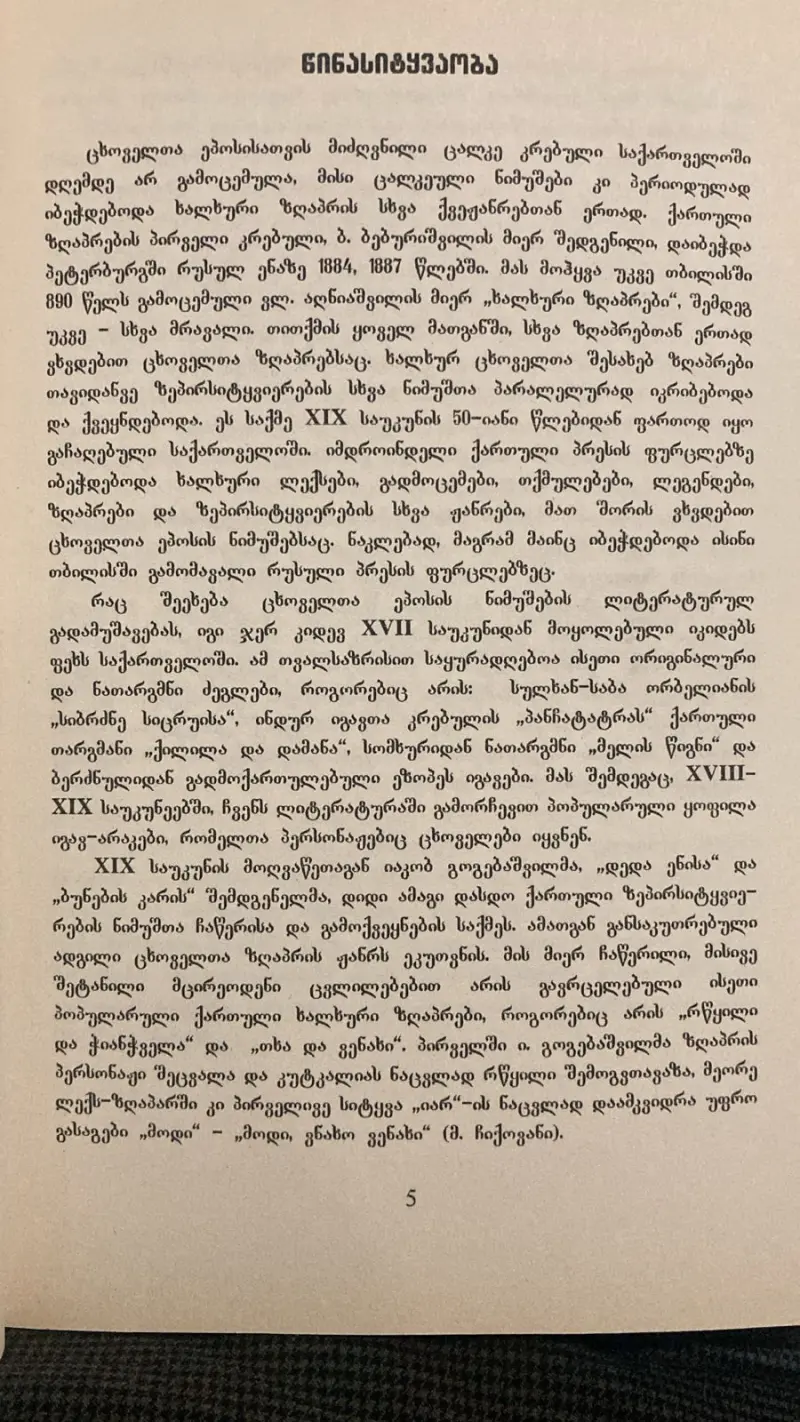 წინასიტყვაობა
ცხოველთა ეპოსისათვის მიძღვნილი ცალკე კრებული საქართველოში
დღემდე არ გამოცემულა, მისი ცალკეული ნიმუშები კი პერიოდულად
იბეჭდებოდა ხალხური ზღაპრის სხვა ქვეჟანრებთან ერთად. ქართული
ზღაპრების პირველი კრებული, ბ. ბებურიშვილის მიერ შედგენილი, დაიბეჭდა
პეტერბურგში რუსულ ენაზე 1884, 1887 წლებში. მას მოჰყვა უკვე თბილისში
890 წელს გამოცემული ვლ. აღნიაშვილის მიერ „ხალხური ზღაპრები“, შემდეგ
უკვე – სხვა მრავალი. თითქმის ყოველ მათგანში, სხვა ზღაპრებთან ერთად
ვხვდებით ცხოველთა ზღაპრებსაც. ხალხურ ცხოველთა შესახებ ზღაპრები
თავიდანვე ზეპირსიტყვიერების სხვა ნიმუშთა პარალელურად იკრიბებოდა
და ქვეყნდებოდა. ეს საქმე XIX საუკუნის 50–იანი წლებიდან ფართოდ იყო
გაჩაღებული საქართველოში. იმდროინდელი ქართული პრესის ფურცლებზე
იბეჭდებოდა ხალხური ლექსები, გადმოცემები, თქმულებები, ლეგენდები,
ზღაპრები და ზეპირსიტყვიერების სხვა ჟანრები, მათ შორის ვხვდებით
ცხოველთა ეპოსის ნიმუშებსაც. ნაკლებად, მაგრამ მაინც იბეჭდებოდა ისინი
თბილისში გამომავალი რუსული პრესის ფურცლებზეც.
რაც შეეხება ცხოველთა ეპოსის ნიმუშების ლიტერატურულ
გადამუშავებას, იგი ჯერ კიდევ XVII საუკუნიდან მოყოლებული იკიდებს
ფეხს საქართველოში. ამ თვალსაზრისით საყურადღებოა ისეთი ორიგინალური
და ნათარგმნი ძეგლები, როგორებიც არის: სულხან–საბა ორბელიანის
„სიბრძნე სიცრუისა“, ინდურ იგავთა კრებულის „პანჩატატრას“ ქართული
თარგმანი „ქილილა და დამანა“, სომხურიდან ნათარგმნი „მელის წიგნი“ და
ბერძნულიდან გადმოქართულებული ეზოპეს იგავები. მას შემდეგაც, XVIII–
XIX საუკუნეებში, ჩვენს ლიტერატურაში გამორჩევით პოპულარული ყოფილა
იგავ–არაკები, რომელთა პერსონაჟებიც ცხოველები იყვნენ.
XIX საუკუნის მოღვაწეთაგან იაკობ გოგებაშვილმა, „დედა ენისა“ და
„ბუნების კარის“ შემდგენელმა, დიდი ამაგი დასდო ქართული ზეპირსიტყვიე–
რების ნიმუშთა ჩაწერისა და გამოქვეყნების საქმეს. ამათგან განსაკუთრებული
ადგილი ცხოველთა ზღაპრის ჟანრს ეკუთვნის. მის მიერ ჩაწერილი, მისივე
შეტანილი მცირეოდენი ცვლილებებით არის გავრცელებული ისეთი
პოპულარული ქართული ხალხური ზღაპრები, როგორებიც არის „რწყილი
და ჭიანჭველა“ და „თხა და ვენახი“. პირველში ი. გოგებაშვილმა ზღაპრის
პერსონაჟი შეცვალა და კუტკალიას ნაცვლად რწყილი შემოგვთავაზა, მეორე
ლექს–ზღაპარში კი პირველივე სიტყვა „იარ“–ის ნაცვლად დაამკვიდრა უფრო
გასაგები „მოდი“ – „მოდი, ვნახო ვენახი“ (მ. ჩიქოვანი).
5